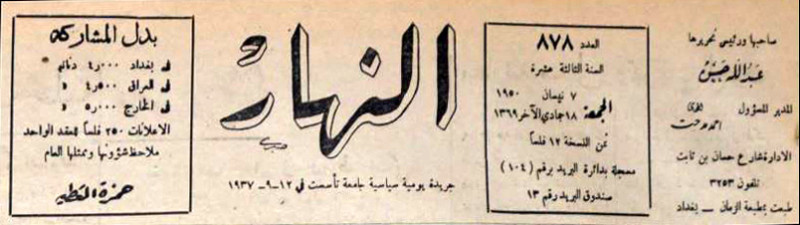 صاحبها ورئيس تحريرها
عبدالله حسن
المدير المسؤول
المحامي
احمد مدحت
الادارة شارع حسان بن ثابت
تلفون ٣٢٥٣
طبعت بمطبعة الزمان — بغداد
العدد ٨٧٨
السنة الثالثة عشرة
٧ نيسان ١٩٥٠
الجمعة
١٨ جمادي الآخر ١٣٦٩
ثمن النسخة ١٢ فلساً
مسجلة بدائرة البريد برقم (١٠٤)
صندوق البريد رقم ١٣
النهار
جريدة يومية سياسية جامعة تأسست في ١٢-٩-١٩٣٧
بدل المشاركة
في بغداد ٤٫٠٠٠ دنانير
في العراق ٤٫٥٠٠ »
في الخارج ٥٫٠٠٠ »
الاعلانات ٢٥٠ فلساً للعقد الواحد
ملاحظ شؤونها وممثلها العام
حمزة